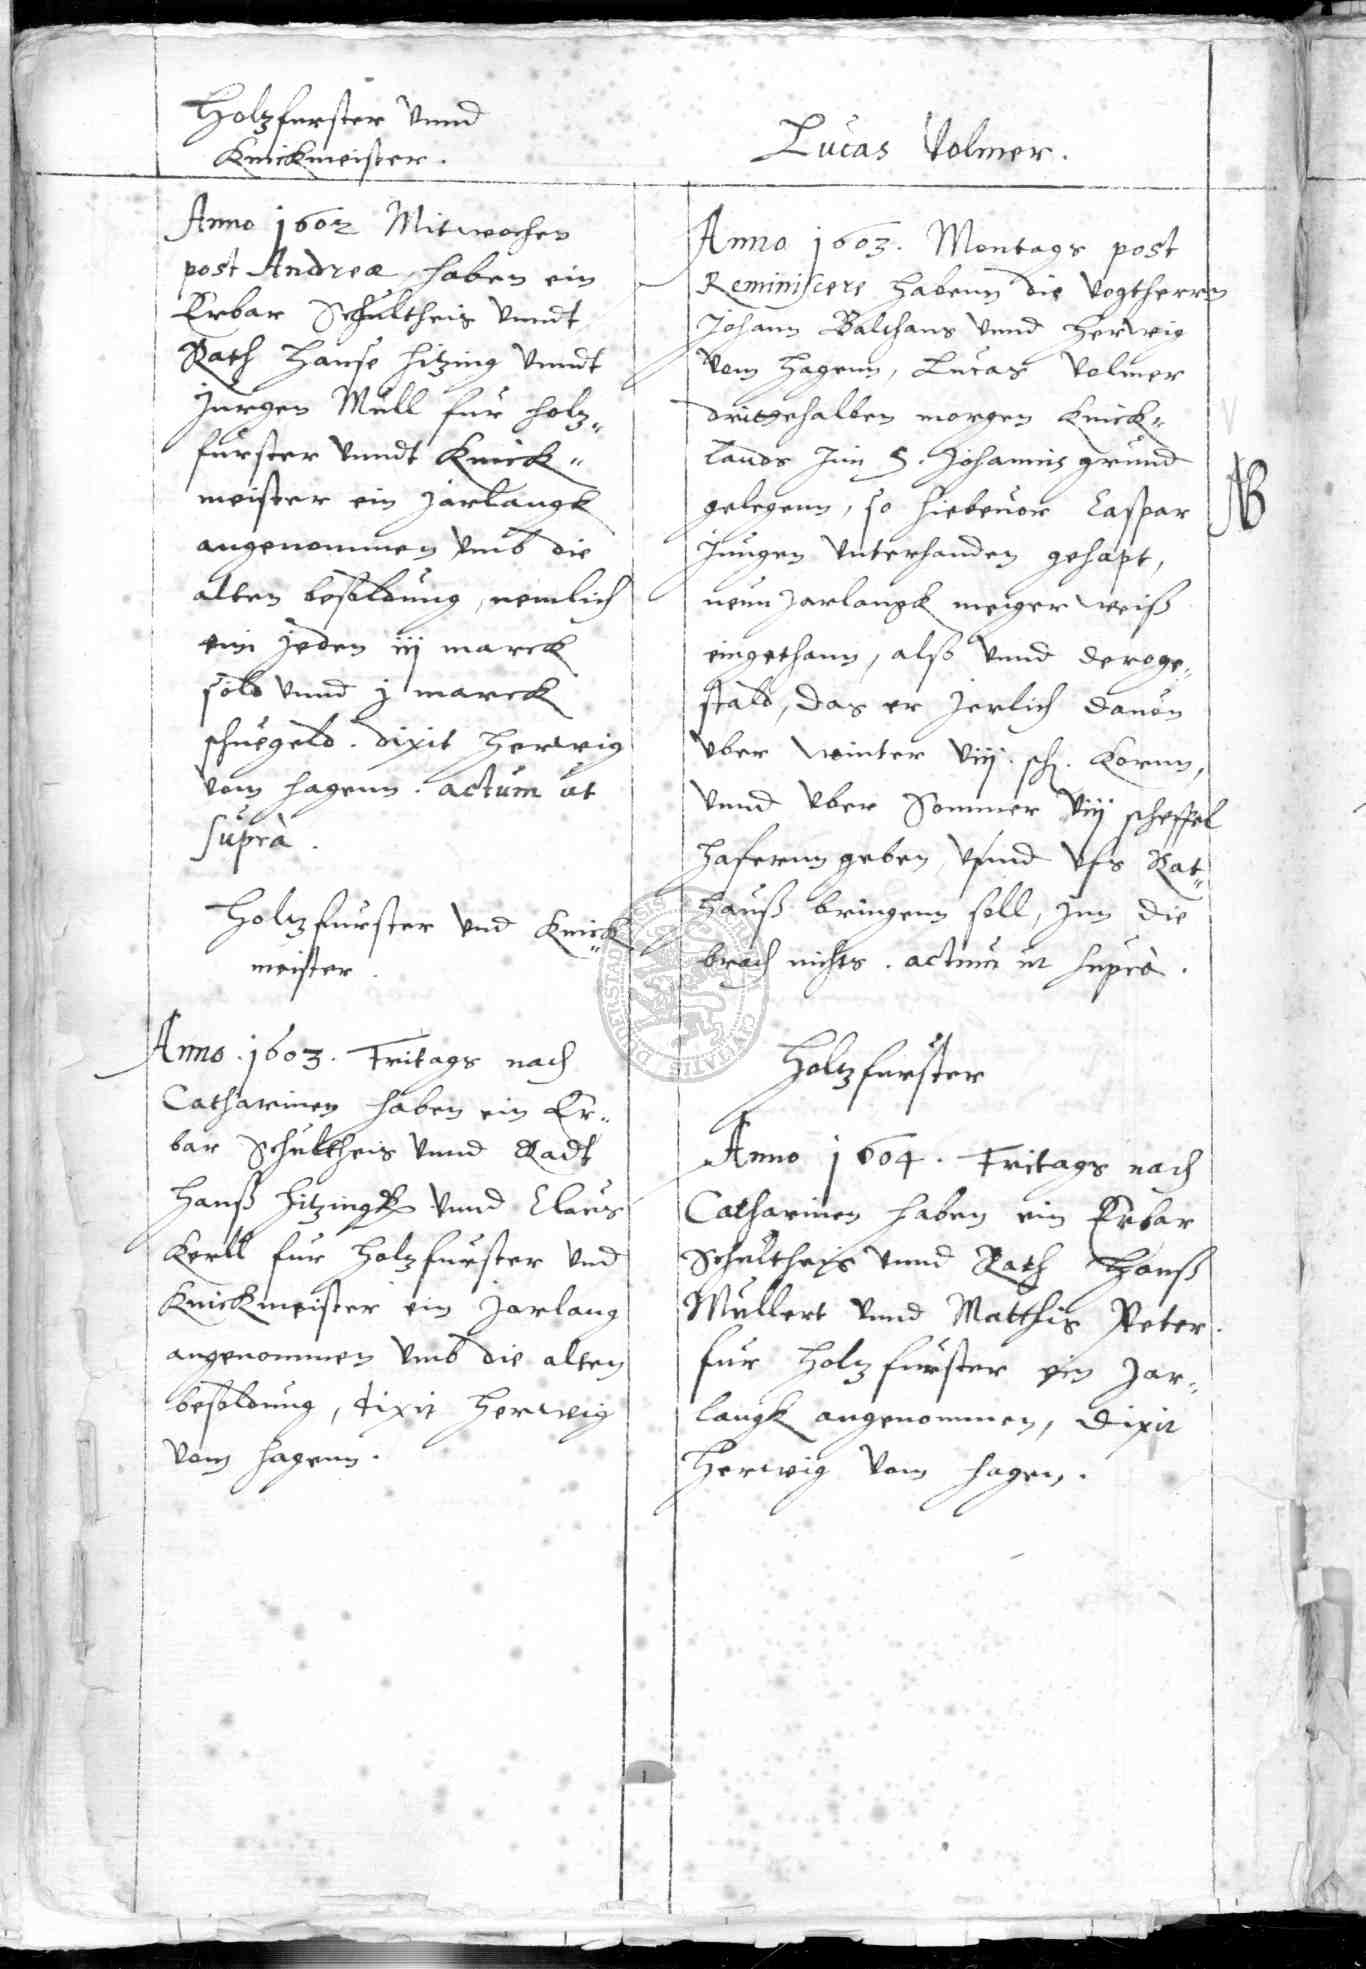 Holtzfurster vnnd
Knickmeister.
Anno 1602 Mitwochen
post Andreæ, haben ein
Erbar Schultheis vnndt
Rath Hanse Hitzing vnndt
Jurgen Mull fur holtz„
furster vnndt Knick„
meister ein jarlangk
angenommen vmb die
alten besoldung, nemlich
ein jeden iij marck
sold vnnd j marck
schuegeld. dixit Herwig
vom Hagenn. actum ut
supra.
Holtzfurster vnd Knick„
meister.
Anno 1603. Fritags nach
Catharinen haben ein Er„
bar Schultheis vnnd Radt
Hanß Hitzingk vnnd Claus
Kerll fur Holtzfurster vnd
Knickmeister ein Jarlang
angenommen vmb die alten
besoldung, dixit Herwig
vom Hagenn.
Lucas Volmer.
Anno 1603. Montags post
Reminiscere habenn die vogtherrn
Johann Balthaus vnnd Herwig
vom Hagenn, Lucas Volmer
drittehalben morgen Knick„
lands Jnn S. Johannis grund
gelegenn, so hiebeuor Caspar
Jungen vnterhanden gehapt,
neun Jarlangk meiger weiß
eingethann, alß vnnd deroge„
stald, das er Jerlich dauon
vber winter viij. sch. Kornn,
vnnd vber Sommer viij scheffel
Hafernn geben, vnnd vfs Rat„
hauß bringenn soll, Jnn die
brach nichts. actum ut supra.
NB
Holtzfurster
Anno 1604. Fritags nach
Catharinen haben ein Erbar
Schultheis vnnd Rath Hanß
Mullert vnnd Matthis Peter
fur Holtzfurster ein Jar„
langk angenommen, dixit
Herwig vom Hagen.